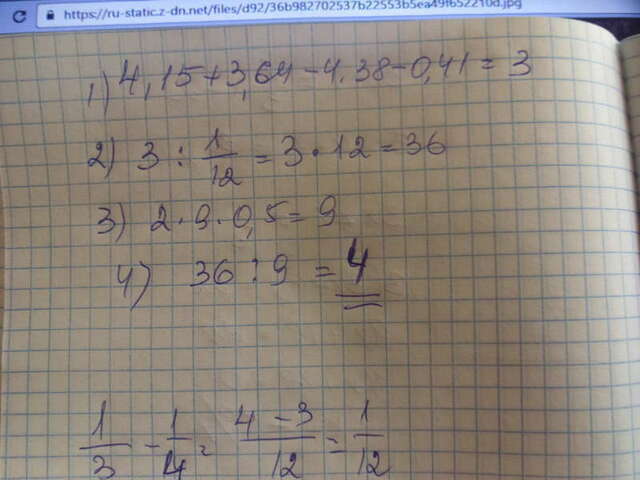 https://ru-static.z-dn.net/files/d92/36b982702537b22553b5ea49f652210d.jpg
1) 4,15+3,64-4,38-0,41=3
2) 3 : 1/12 = 3·12=36
3) 2·9·0,5=9
4) 36:9 = 4
1/3 - 1/4 = 4-3/12 = 1/12